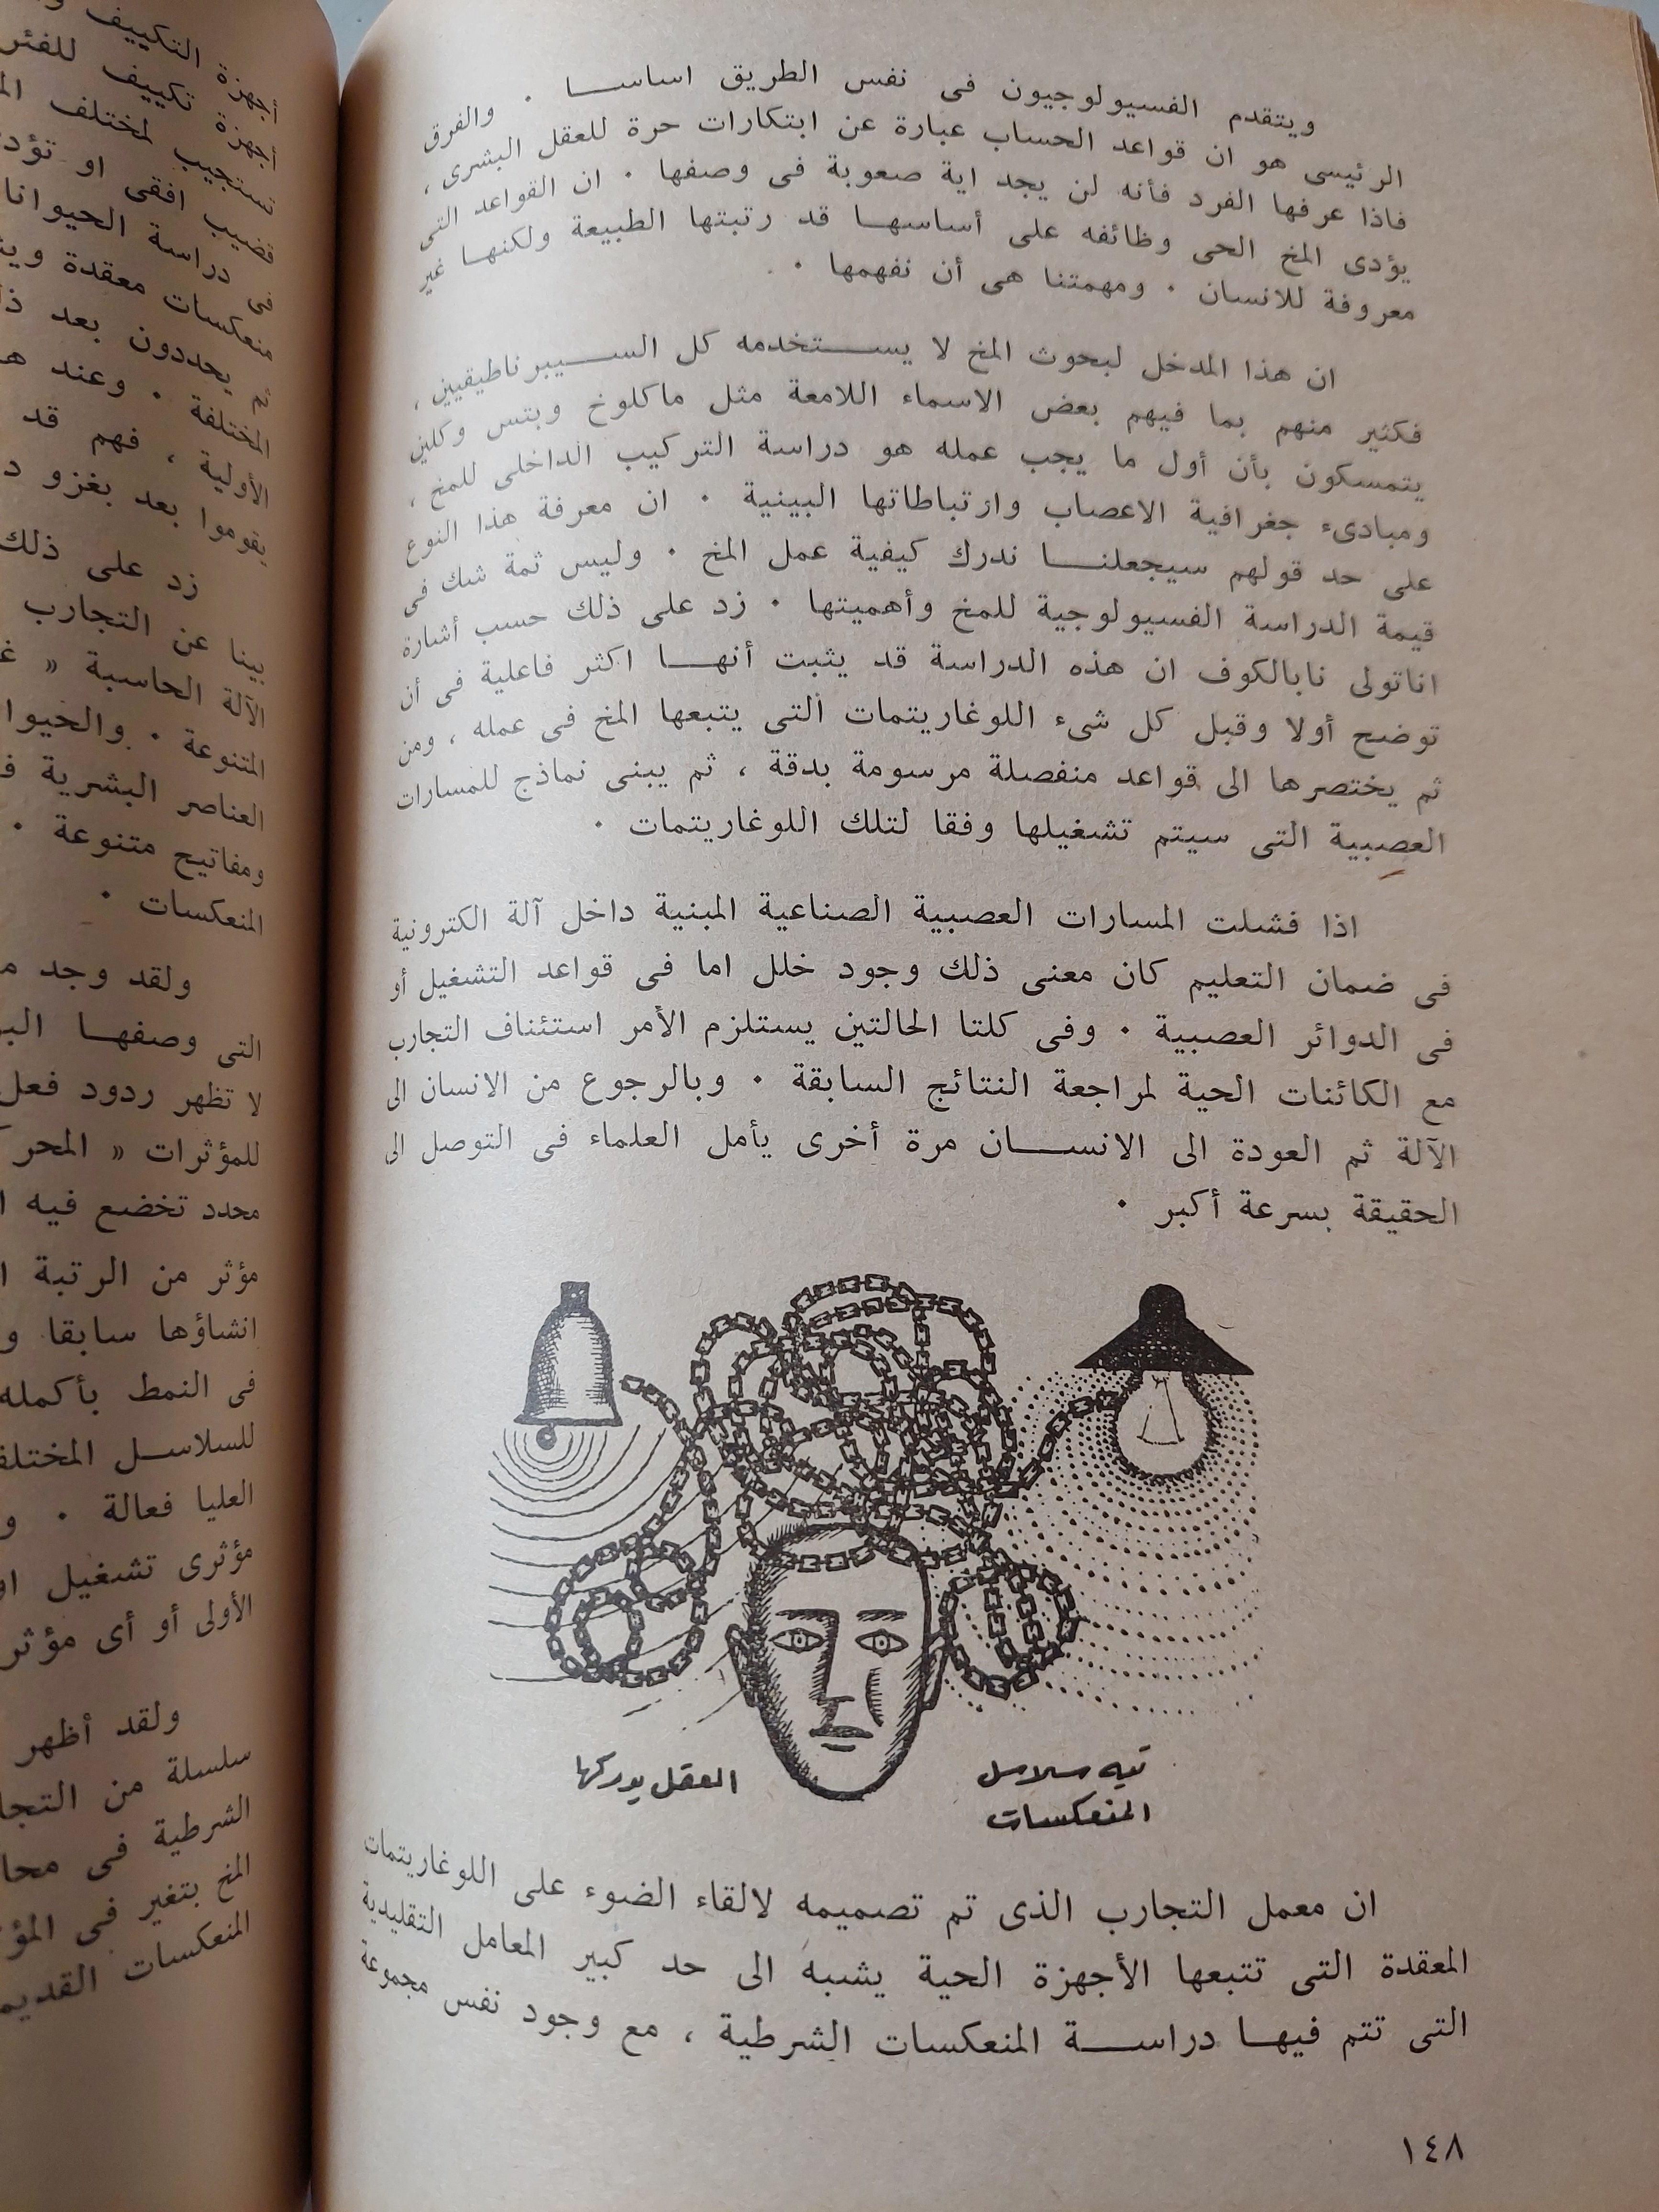 ويتقدم الفسيولوجيون فى نفس الطريق اساسا . والفرق
الرئيسى هو ان قواعد الحساب عبارة عن ابتكارات حرة للعقل البشرى ،
فاذا عرفها الفرد فأنه لن يجد اية صعوبة فى وصفها . ان القواعد التى
يؤدى المخ الحى وظائفه على أساسها قد رتبتها الطبيعة ولكنها غير
معروفة للانسان . ومهمتنا هى أن نفهمها .
ان هذا المدخل لبحوث المخ لا يستخدمه كل السيبرناطيقيين ،
فكثير منهم بما فيهم بعض الاسماء اللامعة مثل ماكلوخ وبتس وكلين
يتمسكون بأن أول ما يجب عمله هو دراسة التركيب الداخلى للمخ ،
ومبادىء جغرافية الاعصاب وارتباطاتها البينية . ان معرفة هذا النوع
على حد قولهم سيجعلنا ندرك كيفية عمل المخ . وليس ثمة شك فى
قيمة الدراسة الفسيولوجية للمخ وأهميتها . زد على ذلك حسب أشارة
اناتولى نابالكوف ان هذه الدراسة قد يثبت أنها اكثر فاعلية فى أن
توضح أولا وقبل كل شىء اللوغاريتمات التى يتبعها المخ فى عمله ، ومن
ثم يختصرها الى قواعد منفصلة مرسومة بدقة ، ثم يبنى نماذج للمسارات
العصبية التى سيتم تشغيلها وفقا لتلك اللوغاريتمات .
اذا فشلت المسارات العصبية الصناعية المبنية داخل آلة الكترونية
فى ضمان التعليم كان معنى ذلك وجود خلل اما فى قواعد التشغيل أو
فى الدوائر العصبية . وفى كلتا الحالتين يستلزم الأمر استئناف التجارب
مع الكائنات الحية لمراجعة النتائج السابقة . وبالرجوع من الانسان الى
الآلة ثم العودة الى الانسان مرة أخرى يأمل العلماء فى التوصل الى
الحقيقة بسرعة أكبر .
تيه سلاسل
المنعكسات
العقل يدركها
ان معمل التجارب الذى تم تصميمه لالقاء الضوء على اللوغاريتمات
المعقدة التى تتبعها الأجهزة الحية يشبه الى حد كبير المعامل التقليدية
التى تتم فيها دراسة المنعكسات الشرطية ، مع وجود نفس مجموعة
١٤٨
أجهزة التكييف
أجهزة تكييف للفئر
تستجيب لمختلف
قضيب افقى او تؤد
فى دراسة الحيوانا
منعكسات معقدة
ثم يحددون بعد
المختلفة . وعند
الأولية ، فهم قد
يقوموا بعد بغزو
زد على ذلك
بينا عن التجارب
الآلة الحاسبة «
المتنوعة . والحيوا
العناصر البشرية
ومفاتيح متنوعة .
المنعكسات .
ولقد وجد
التى وصفها
لا تظهر ردود فعل
للمؤثرات « المحر
محدد تخضع فيه
مؤثر من الرتبة
انشاؤها سابقا و
فى النمط بأكمله
للسلاسل المختلف
العليا فعالة . و
مؤثرى تشغيل
الأولى أو أى مؤثر
ولقد أظهر
سلسلة من التجا
الشرطية فى محا
المخ بتغير فى المؤ
المنعكسات القديم